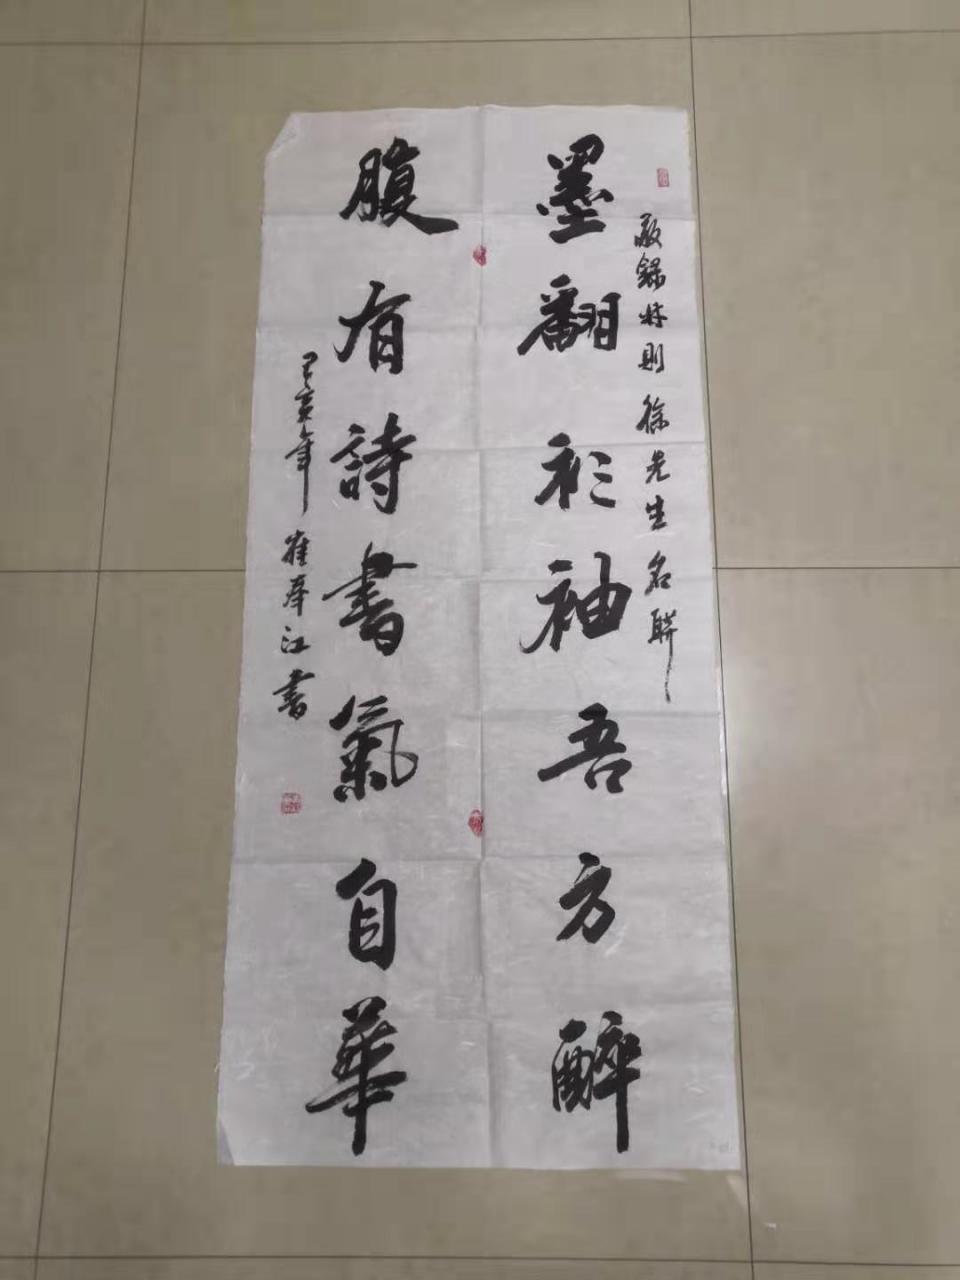 敬錄林則徐先生名聯
墨翻衫袖吾方醉
腹有詩書氣自華
己亥年崔華江書